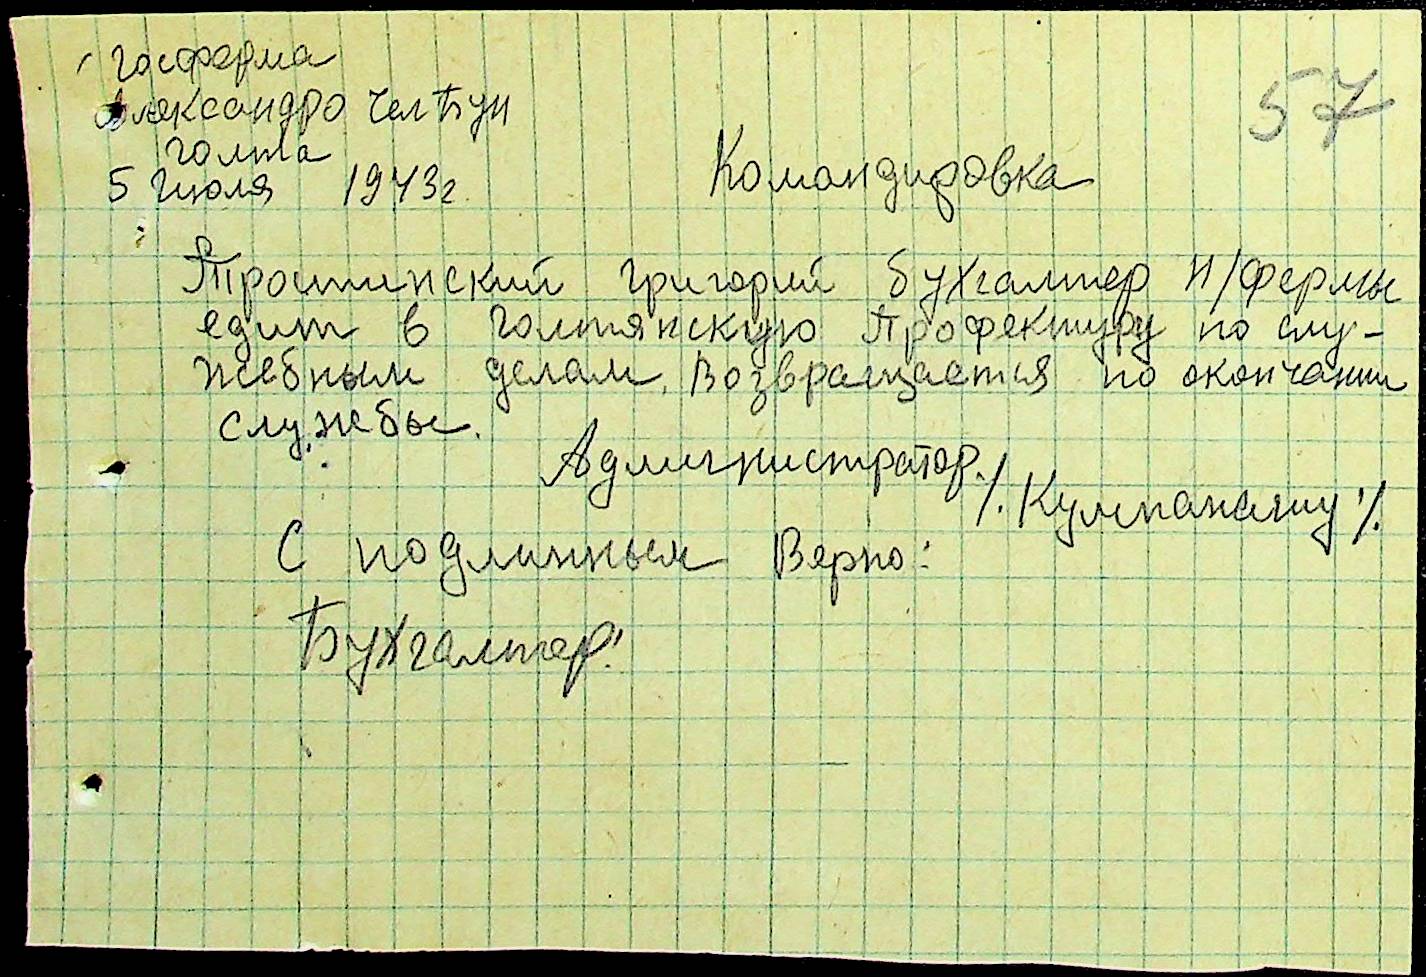 Госферма
Александро чел Бун
Голта
5 Июля 1943г.
57
Командировка
Трошинский Григорий Бухгалтер Н/Фермы
едит в Голтянскую Профектуру по слу-
жебным делам. Возвращается по окончании
службы.
Администратор
/. Кулпанашу /.
С подлинным Верно:
Бухгалтер: